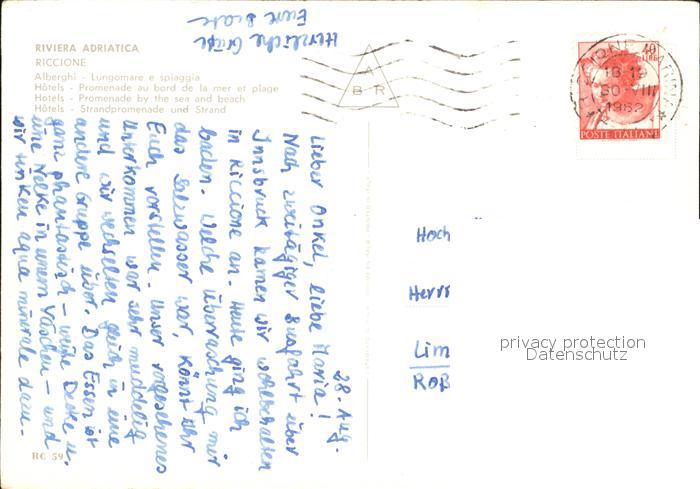 RIVIERA ADRIATICA
RICCIONE
Alberghi - Lungomare e spiaggia
Hôtels - Promenade au bord de la mer et plage
Hotels - Promenade by the sea and beach
Hôtels - Strandpromenade und Strand
A
B R
40
LIRE
18-19
30 VIII
1962
POSTE ITALIANE
28. Aug.
Lieber Onkel, liebe Maria!
Nach zweitägiger Busfahrt über
Innsbruck kamen wir wohlbehalten
in Riccione an. Heute ging ich
baden. Welche Überraschung mir
das Salzwasser war, könnt Ihr
Euch vorstellen. Unser vorgesehenes
Unterkommen war sehr muddelig
und wir wechselten gleich in eine
andere Gruppe über. Das Essen ist
ganz phantastisch - weiße Decke u.
eine Nelke in einem Väschen - und
wir trinken aqua minerale dazu.
Herzliche Grüße
Eure Beate
Hoch
Herrn
Lim
Roß
privacy protection
Datenschutz
RC 59